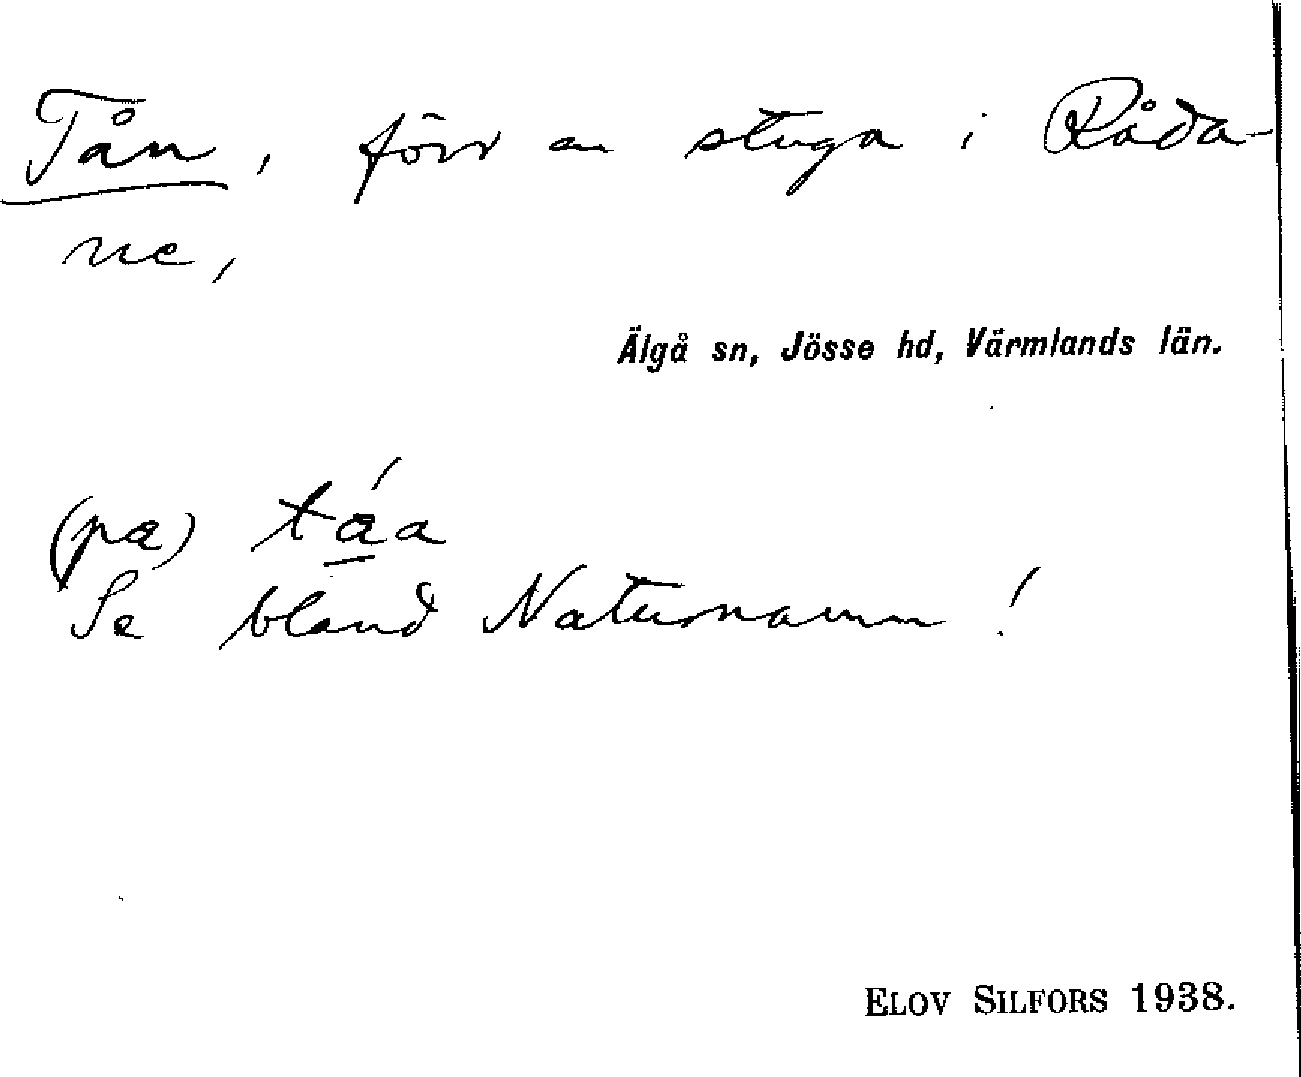 Tån, förr en stuga i Råda-
ne,
Älgå sn, Jösse hd, Värmlands län.
(pa) táa
Se bland Naturnamn!
ELOV SILFORS 1938.